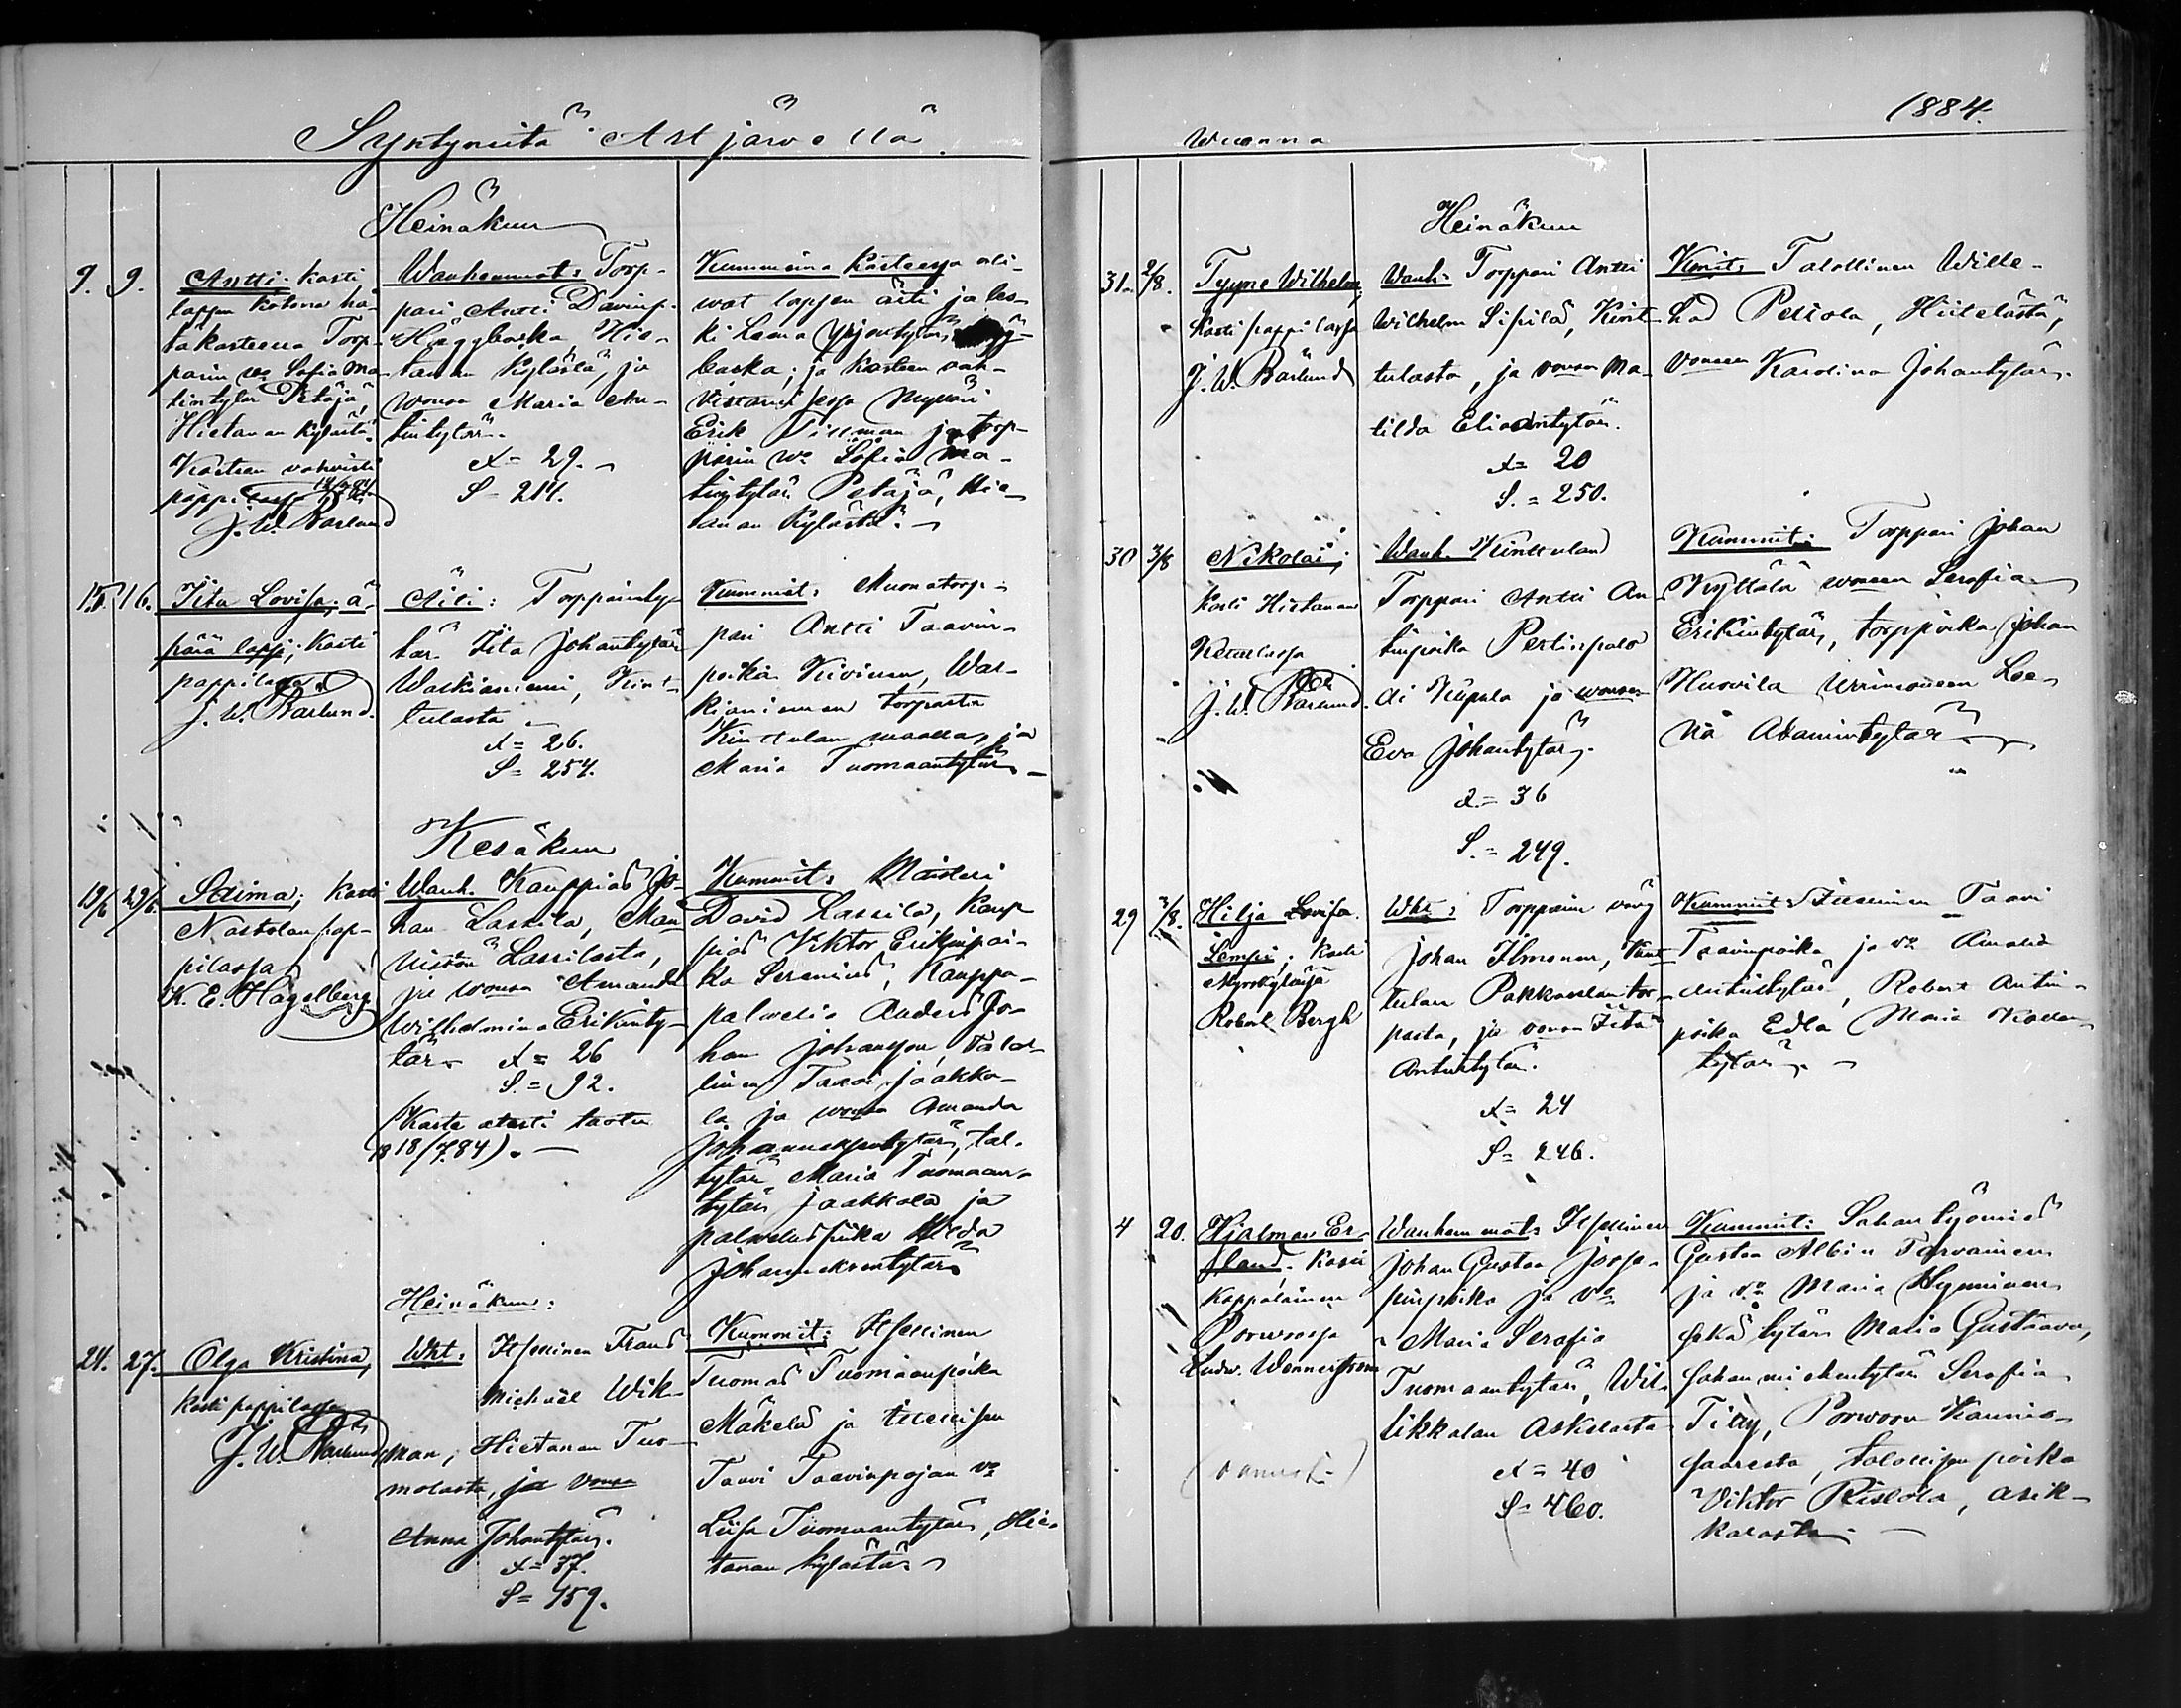 Syntyneitä Artjärvellä
Heinäkuu
9. 9. Antti. kasti
lapsen kotona hä-
täkasteena Torp-
parin wo Sofia Ma-
tintytär Petäjä,
Hietanan kylästä.
Kasteen vahvisti
pappilassa 14/7 84
J. W. Barlund
Wanhemmat: Torp-
pari Antti Davinp.
Häggbacka, Hie-
tanan kylästä, ja
wonsa Maria An-
tintytär.
S = 214.
Kummeina kasteessa oli-
wat lapsen äiti ja les-
ki Leena Yrjöntytär,
backa; ja kasteen vah-
vistamisessa Mynäri
Erik Tillman ja torp-
parin wo Sofia Ma-
tintytär Petäjä, Hie-
tanan kylästä.
15. 16. Iita Lovisa; ä-
pärä lapsi; kasti
pappilassa
J. W. Barlund.
Äiti: Torpparinty-
tär Iita Johantytär
Waskianiemi, Kint-
tulasta.
= 26.
S = 257.
Kummit: Muonatorp-
pari Antti Taavin-
poika Kivinen, Was-
kianiemen torpasta
Kinttulan maalla, ja
Maria Tuomaantytär
Kesäkuu
19/6 29/6. Saima; kasti
Nastolan pap-
pilassa
K. E. Hagelberg
Wanh. Kauppias Jo-
han Lassila, Man-
Lassilasta,
ja wonsa Amanda
Wilhelmina Erikinty-
tär = 26
S. = 92.
(Kaste atesti tuotu
18/7.84).
Kummit: Maisteri
David Lassila, Kaup-
pias Viktor Erikinpoi-
ka Serenius, Kauppa-
palvelia Anders Jo-
han Johansson, talol-
linen Taavi Jaakko-
la ja wonsa Amanda
Johanneksentytär, tal.
tytär Maria Tuomaan-
tytär Jaakkola ja
palveluspiika Hilda
Johanneksentytär
Heinäkuu:
24. 27. Olga Kristina,
kasti pappilassa
J. W. Barlund
Wht: Itsellinen Frans
Michaël Wik-
man, Hietanan Tuo-
molasta, ja vonsa
Anna Johantytär.
= 37.
S = 159.
Kummit: Itsellinen
Tuomas Tuomaanpoika
Mäkelä ja itsellisen
Taavi Taavinpojan vo
Liisa Tuomaantytär, Hie-
tanan kylästä.
Wuonna 1884.
Heinäkuu
31. 2/8. Tyyne Wilhelm;
kasti pappilassa
J. W. Barlund
Wanh. Torppari Antti
Wilhelm Sipilä, Kint-
tulasta, ja vonsa Ma-
tilda Eliantytär.
= 20
S. = 250.
Kmit: Talollinen Wille-
had Peltola, Hiitelästä,
vonsa Karolina Johantytär.
30 3/8 Nikolai;
kasti Hietanan
J. W. Barlund.
Wanh. Kinttulan
Torppari Antti An-
tinpoika
ja wonsa
Eva Johantytär,
= 36
S. = 249.
Kummit: Torppari Johan
Kyttälä wonsa Serafia
Erikintytär, torppoika Johan
Husvila
Adamintytär
29 3/8. Hilja Lovisa
Lempi; kasti
Myrskylässä
Robert Bergh
Wht: Torpparin vävy
Johan Ilmonen, Kint-
tulan Pakkaslan tor-
pasta, ja vonsa Iita
Antintytär.
= 24
S = 246.
Kummit: Taavi
Taavinpoika ja vo Amalia
Antintytär, Robert Antin-
poika Edla Maria Kallen-
tytär.
4 20. Hjalmar Er-
land. kasti
Kappalainen
Porwoossa
Ludv. Wennerström
Wanhemmat: Itsellinen
Johan Gustaa Josse-
pinpoika ja vo
Maria Serafia
Tuomaantytär, Wil-
likkalan Askolasta
= 40
S = 460.
Kummit: Sahan työmies
Gustaa Albin Tarvainen
ja vo Maria Hynninen
tytär Maria Gustaava,
Sahan miehentytär Serafia
Tilly, Porwoon Haunis-
saaresta, talollisen poika
Viktor Ristola, Asik-
kalasta.